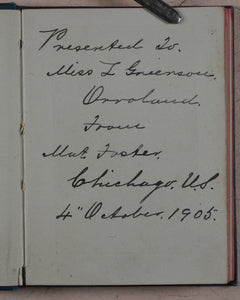 Presented To.
Miss L Grierson,
Orroland.
From
Mat. Foster,
Chichago. U.S.
4" October. 1905.